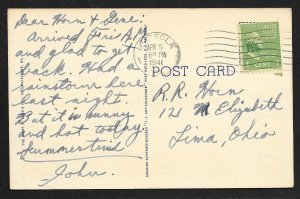 Dear Worn & Gene:
Arrived Fri A.M.
and glad to get
back. Had a
rainstorm here
last night.
But it is sunny
and hot today.
Summertime
John.
APR 5
PM
1941
POST CARD
CENT
R. R. Worn
121 N Elizabeth
Lima, Ohio